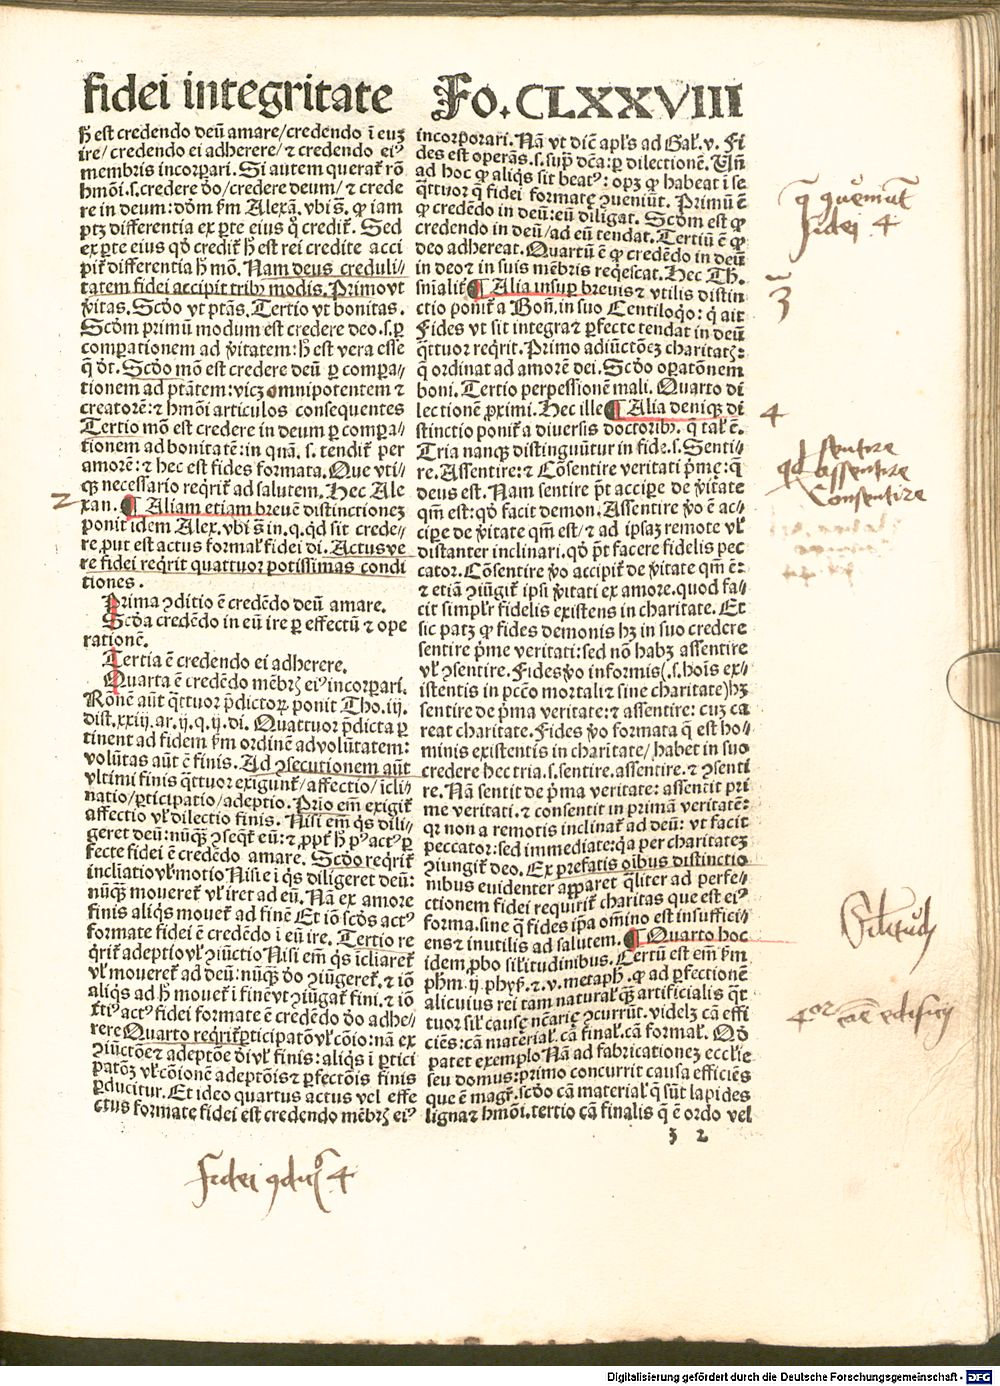 fidei integritate
Fo. CLXXVIII
ħ est credendo deū amare/credendo ī euʒ
ire/credendo ei adherere/ ⁊ credendo eiꝰ
membris incorꝑari. Si autem querat̃ rõ
hmõi.s.credere ꝺo/credere deum/ ⁊ crede
re in deum: dõm ẜm Alexā. vbi s̄. ꝙ iam
ptʒ differentia ex ꝑte eius q̄ credit̃. Sed
ex ꝑte eius qꝺ credit̃ ħ est rei credite acci
pit̃ differentia ħ mõ. Nam deus creduli⸗
tatem fidei accipit tribꝰ modis. Primo vt
v̄itas. Scꝺo vt ptās. Tertio vt bonitas.
Scꝺm primū modum est credere deo .s.ꝑ
comparationem ad v̄itatem: ħ est vera esse
q̄ ꝺt. Scꝺo mõ est credere deū ꝑ compa⸗
tionem ad ptātem: vicʒ omnipotentem ⁊
creatorē: ⁊ hmõi articulos consequentes
Tertio mõ est credere in deum ꝑ compa⸗
tionem ad bonitatē: in quā .s. tendit̃ per
amorē: ⁊ hec est fides formata. Que vti⸗
qꝫ necessario req̄rit̃ ad salutem. Hec Ale
xan. ¶ Aliam etiam breuē distinctioneʒ
ponit idem Alex. vbi s̄ in .q. qꝺ sit crede⸗
re prout est actus formaƚ fidei di. Actus ve
re fidei req̄rit quattuor potissimas condi
tiones.
Prima ꝯditio ē credēdo deū amare.
Scꝺa credēdo in eū ire ꝑ effectū ⁊ ope
rationē.
Tertia ē credendo ei adherere.
Quarta ē credēdo mēbrʒ eiꝰ incorꝑari.
Rõnē aūt q̄ttuor p̄dictoꝝ ponit Tho. iij.
dist. xxiij. ar. ij. q. ij. di. Quattuor p̄dicta ꝑ
tinent ad fidem ẜm ordinē ad volūtatem:
volūtas aūt ē finis. Ad ꝯsecutionem aūt
vltimi finis q̄ttuor exigunt̃/affectio/īcli⸗
natio/ꝑticipatio/adeptio. Prīo em̄ exigit̃
affectio vƚ dilectio finis. Nisi em̄ q̄s dili⸗
geret deū: nūqꝫ ꝯseq̄t̃ eū: ⁊ ꝓpt̃ ħ pꝰ actꝰ ꝑ
fecte fidei ē credēdo amare. Scꝺo req̄rit̃
incliatio vƚ motio Nisi ei q̄s diligeret deū:
nūqꝫ moueret̃ vƚ iret ad eū. Nā ex amore
finis aliq̄s mouet̃ ad finē Et iō scꝺs actꝰ
formate fidei ē credēdo ī eū ire. Tertio re
q̄rit̃ adeptio vƚ ꝯiūctio Nisi em̄ q̄s īcliaret̃
vƚ moueret̃ ad deū: nūqꝫ ꝺo ꝯiūgeret̃. ⁊ iō
aliq̄s ad ħ mouet̃ ī finē vt ꝯiūgat̃ fini. ⁊ iō
t̄tiꝰ actꝰ fidei formate ē credēdo ꝺo adhe⸗
rere Quarto req̄rit̃ ꝑticipatõ vƚ cõio: nā ex
ꝯiūctõe ⁊ adeptõe ꝺi vƚ finis: aliq̄s ī ꝑtici
patõʒ vƚ cõionē adeptõis ⁊ ꝑfectõis finis
ꝑducitur. Et ideo quartus actus vel effe
ctus formate fidei est credendo mēbrʒ eiꝰ
incorporari. Nā vt dic̄ apƚs ad Gaƚ. v. Fi
des est operās .s. suꝑ dc̄a: ꝑ dilectionē. Un̄
ad hoc ꝙ aliq̄s sit beatꝰ: opʒ ꝙ habeat ī se
q̄ttuor q̄ fidei formate ꝯueniūt. Primū ē
ꝙ credēdo in deū: eū diligat. Scꝺm est ꝙ
credendo in deū/ad eū tendat. Tertiū ē ꝙ
deo adhereat. Quartū ē ꝙ credēdo in deū
in deo ⁊ in suis mēbris req̄escat. Hec Th.
sn̄ialit̃ ¶ Alia insuꝑ breuis ⁊ vtilis distin
ctio ponit̃ a Bon̄. in suo Centiloq̄o: q̄ ait
Fides vt sit integra ⁊ ꝑfecte tendat in deū
q̄ttuor req̄rit. Primo adiūctõeʒ charitatʒ:
q̄ ordinat ad amorē dei. Scꝺo oꝑatõnem
boni. Tertio perpessionē mali. Quarto di
lectionē ꝓximi. Hec ille ¶ Alia deniqꝫ di
stinctio ponit̃ a diuersis doctoribꝰ. q̄ talꝰ ē.
Tria nanqꝫ distinguūtur in fide .s. Senti⸗
re. Assentire: ⁊ Cõsentire veritati p̄me: q̄
deus est. Nam sentire p̄t accipe de v̄itate
qm̄ est: qꝺ facit demon. Assentire v̄o ē ac⸗
ciꝑe de v̄itate qm̄ est/ ⁊ ad ipsaʒ remote vƚ
distanter inclinari. qꝺ p̄t facere fidelis pec
cator. Cõsentire v̄o accipit̃ de v̄itate qm̄ ē:
⁊ etiā ꝯiūgit̃ ipsi v̄itati ex amore. quod fa⸗
cit simpƚr fidelis existens in charitate. Et
sic patʒ ꝙ fides demonis hʒ in suo credere
sentire p̄me veritati: sed nõ habʒ assentire
vƚ ꝯsentire. Fides v̄o informis (.s. hoīs ex⸗
istentis in pctō mortali ⁊ sine charitate) hʒ
sentire de p̄ma veritate: ⁊ assentire: cuʒ ca
reat charitate. Fides v̄o formata q̄ est ho⸗
minis existentis in charitate/ habet in suo
credere hec tria .s. sentire. assentire. ⁊ ꝯsenti
re. Nā sentit de p̄ma veritate: assentit pri
me veritati. ⁊ consentit in primā veritatē:
qꝛ non a remotis inclinat̃ ad deū: vt facit
peccator: sed immediate: q̄a per charitateʒ
ꝯiungit̃ deo. Ex prefatis oībus distinctio
nibus euidenter apparet q̄liter ad perfe⸗
ctionem fidei requirit̃ charitas que est eiꝰ
forma. sine q̄ fides ip̄a om̄ino est insuffici⸗
ens ⁊ inutilis ad salutem. ¶ Quarto hoc
idem ꝓbo siƚitudinibus. Certū est em̄ ẜm
pħm .ij. phyꝭ. ⁊ .v. metapħ. ꝙ ad ꝑfectionē
alicuius rei tam naturaƚ qꝫ artificialis q̄t
tuor siƚ cause nc̄arie ꝯcurrūt. videlʒ cā effi
ciēs: cā materiaƚ. cā finaƚ. cā formaƚ. Qꝺ
patet exemplo Nā ad fabricationeʒ eccƚie
seu domus: primo concurrit causa efficiēs
que ē magr̄. scꝺo cā materiaƚ q̄ sūt lapides
ligna ⁊ hmõi. tertio cā finalis q̄ ē ordo vel
ʒ 2
fidei 4
3
4
sentire
assentire
Consentire
2